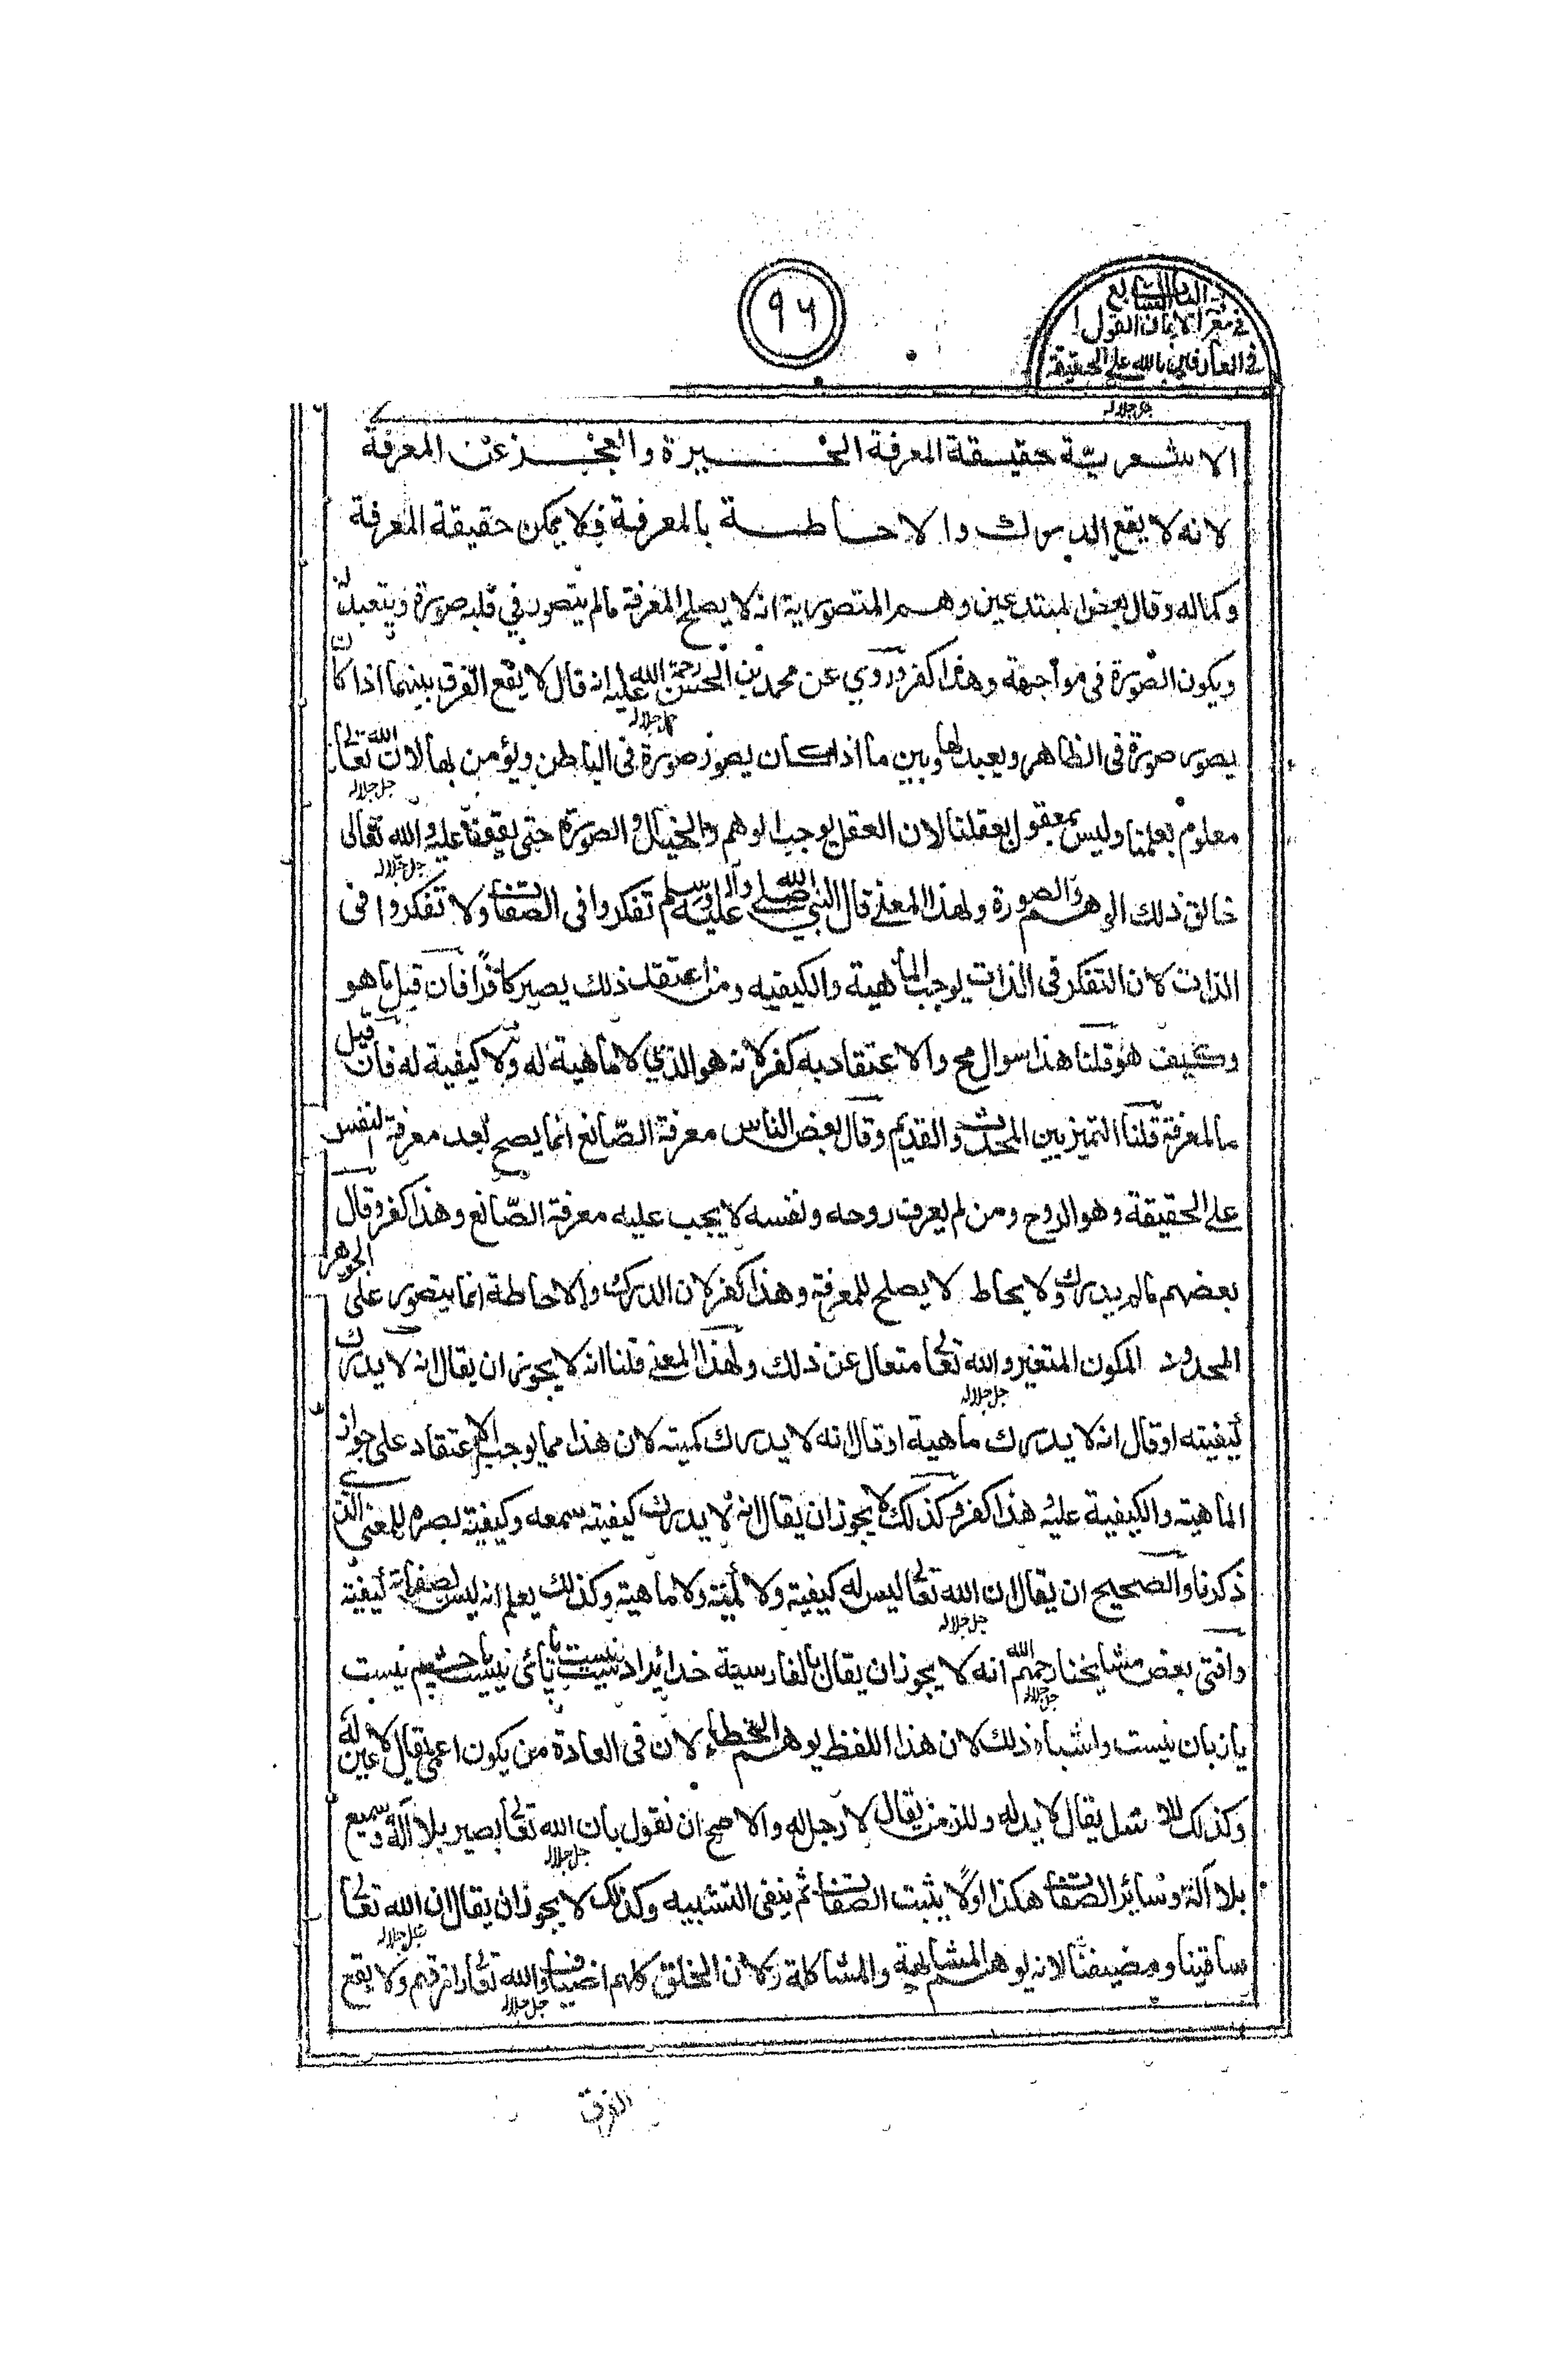 ٩٦
الباب السابع
في معرفة الايمان القول
في العارفين بالله على الحقيقة
جل جلاله
الاشعرية حقيقة المعرفة الحيرة والعجز عن المعرفة
لانه لا يقع الدرك والاحاطة بالمعرفة فلا يمكن حقيقة المعرفة
وكماله وقال بعض المبتدعين وهم المتصورية انه لا يصلح المعرفة مالم يتصور في قلبه صورة ويتعبد له
ويكون الصورة في مواجهة وهذا كفر وروي عن محمد بن الحسن رحمة الله عليه انه قال لا يقع الفرق بينهما اذا كان
يصور صورة في الظاهر ويعبد لها وبين ما اذا كان يصور صورة في الباطن ويؤمن بها لان الله تعالى
جل جلاله
معلوم بعلمنا وليس بمعقول بعقلنا لان العقل يوجب الوهم والخيال والصورة حتى يقف عليه والله تعالى
جل جلاله
خالق ذلك الوهم والصورة ولهذا المعنى قال النبي صلى الله عليه وآله وسلم تفكروا في الصفات ولا تفكروا في
الذات لان التفكر في الذات يوجب الماهية والكيفيه ومن اعتقد ذلك يصير كافرا فان قيل ما هو
وكيف هو قلنا هذا سوال مح والاعتقاد به كفر لانه هو الذي لا ماهية له ولا كيفية له فان قيل
ما المعرفة قلنا التميز بين المحدث والقديم وقال بعض الناس معرفة الصانع انما يصح بعد معرفة النفس
على الحقيقة وهو الروح ومن لم يعرف روحه ونفسه لا يجب عليه معرفة الصانع وهذا كفر وقال
بعضهم مالم يدرك ولا يحاط لا يصلح للمعرفة وهذا كفر لان الدرك والاحاطة انما يتصور على الجوهر
المحدود المكون المتغير والله تعالى متعال عن ذلك ولهذا المعنى قلنا انه لا يجوز ان يقال انه لا يدرك
جل جلاله
كيفيته او قال انه لا يدرك ماهية او قال انه لا يدرك كميته لان هذا مما يوجب الاعتقاد على جواز
الماهيته والكيفية عليه هذا كفر وكذلك لا يجوز ان يقال انه لا يدرك كيفيته سمعه وكيفيته بصره للمعنى الذي
ذكرنا والصحيح ان يقال ان الله تعالى ليس له كيفيته ولا كميته ولا ماهيته وكذلك يعلم انه ليس لصفاته كيفيته
جل جلاله
وافتى بعض مشايخنا رحمهم الله انه لا يجوز ان يقال بالفارسية خدائيرا دست نيست يا پائى نيست يا چشم نيست
جل جلاله
يا زبان نيست واشباه ذلك لان هذا اللفظ يوهم الخطاء لان في العادة من يكون اعمى يقال لا عين له
وكذلك للاشل يقال لا يد له وللزمن يقال لا رجل له والاصح ان نقول بان الله تعالى بصير بلا آلة وسميع
جل جلاله
بلا آلة وسائر الصفات هكذا اولا يثبت الصفات ثم ينفى التشبيه وكذلك لا يجوز ان يقال ان الله تعالى
جل جلاله
ساقينا ومضيفنا لانه يوهم المشابهة والمشاكلة لان الخلق كلهم اضياف والله تعالى رازقهم ولا يقع
جل جلاله
الفرق